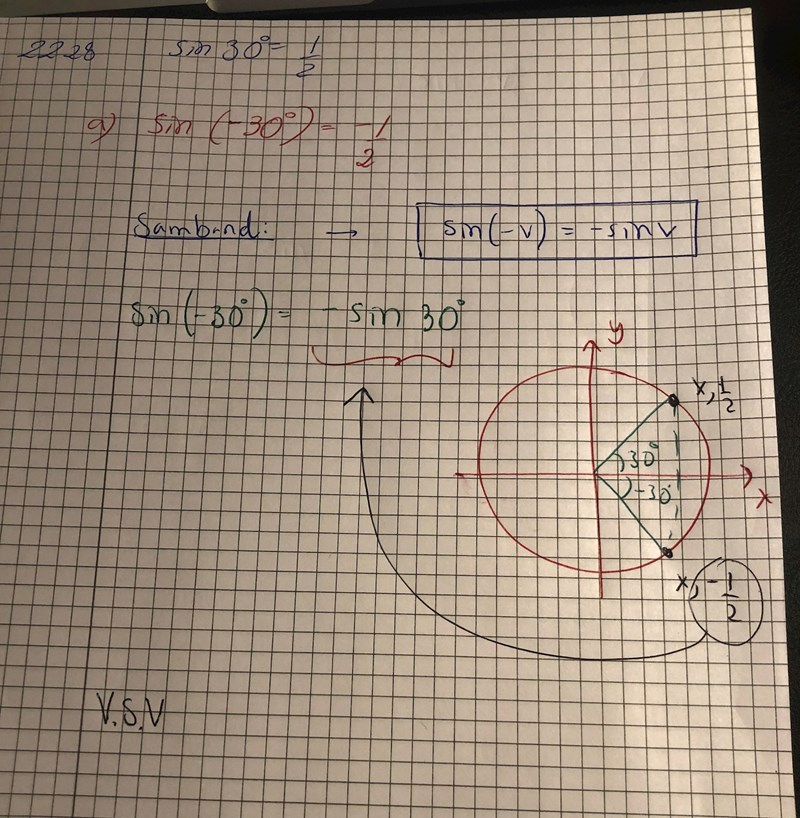 2228 sin 30° = 1/2
a) sin (-30°) = -1/2
Samband: → sin(-v) = -sin v
sin (-30°) = - sin 30°
y
x, 1/2
30°
-30°
x
x, -1/2
V.S.V